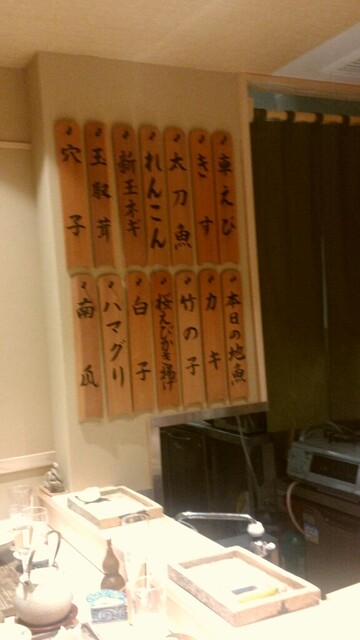 車えび
きす
太刀魚
れんこん
新玉ネギ
玉取茸
穴子
本日の地魚
カキ
竹の子
桜えびかき揚げ
白子
ハマグリ
南瓜